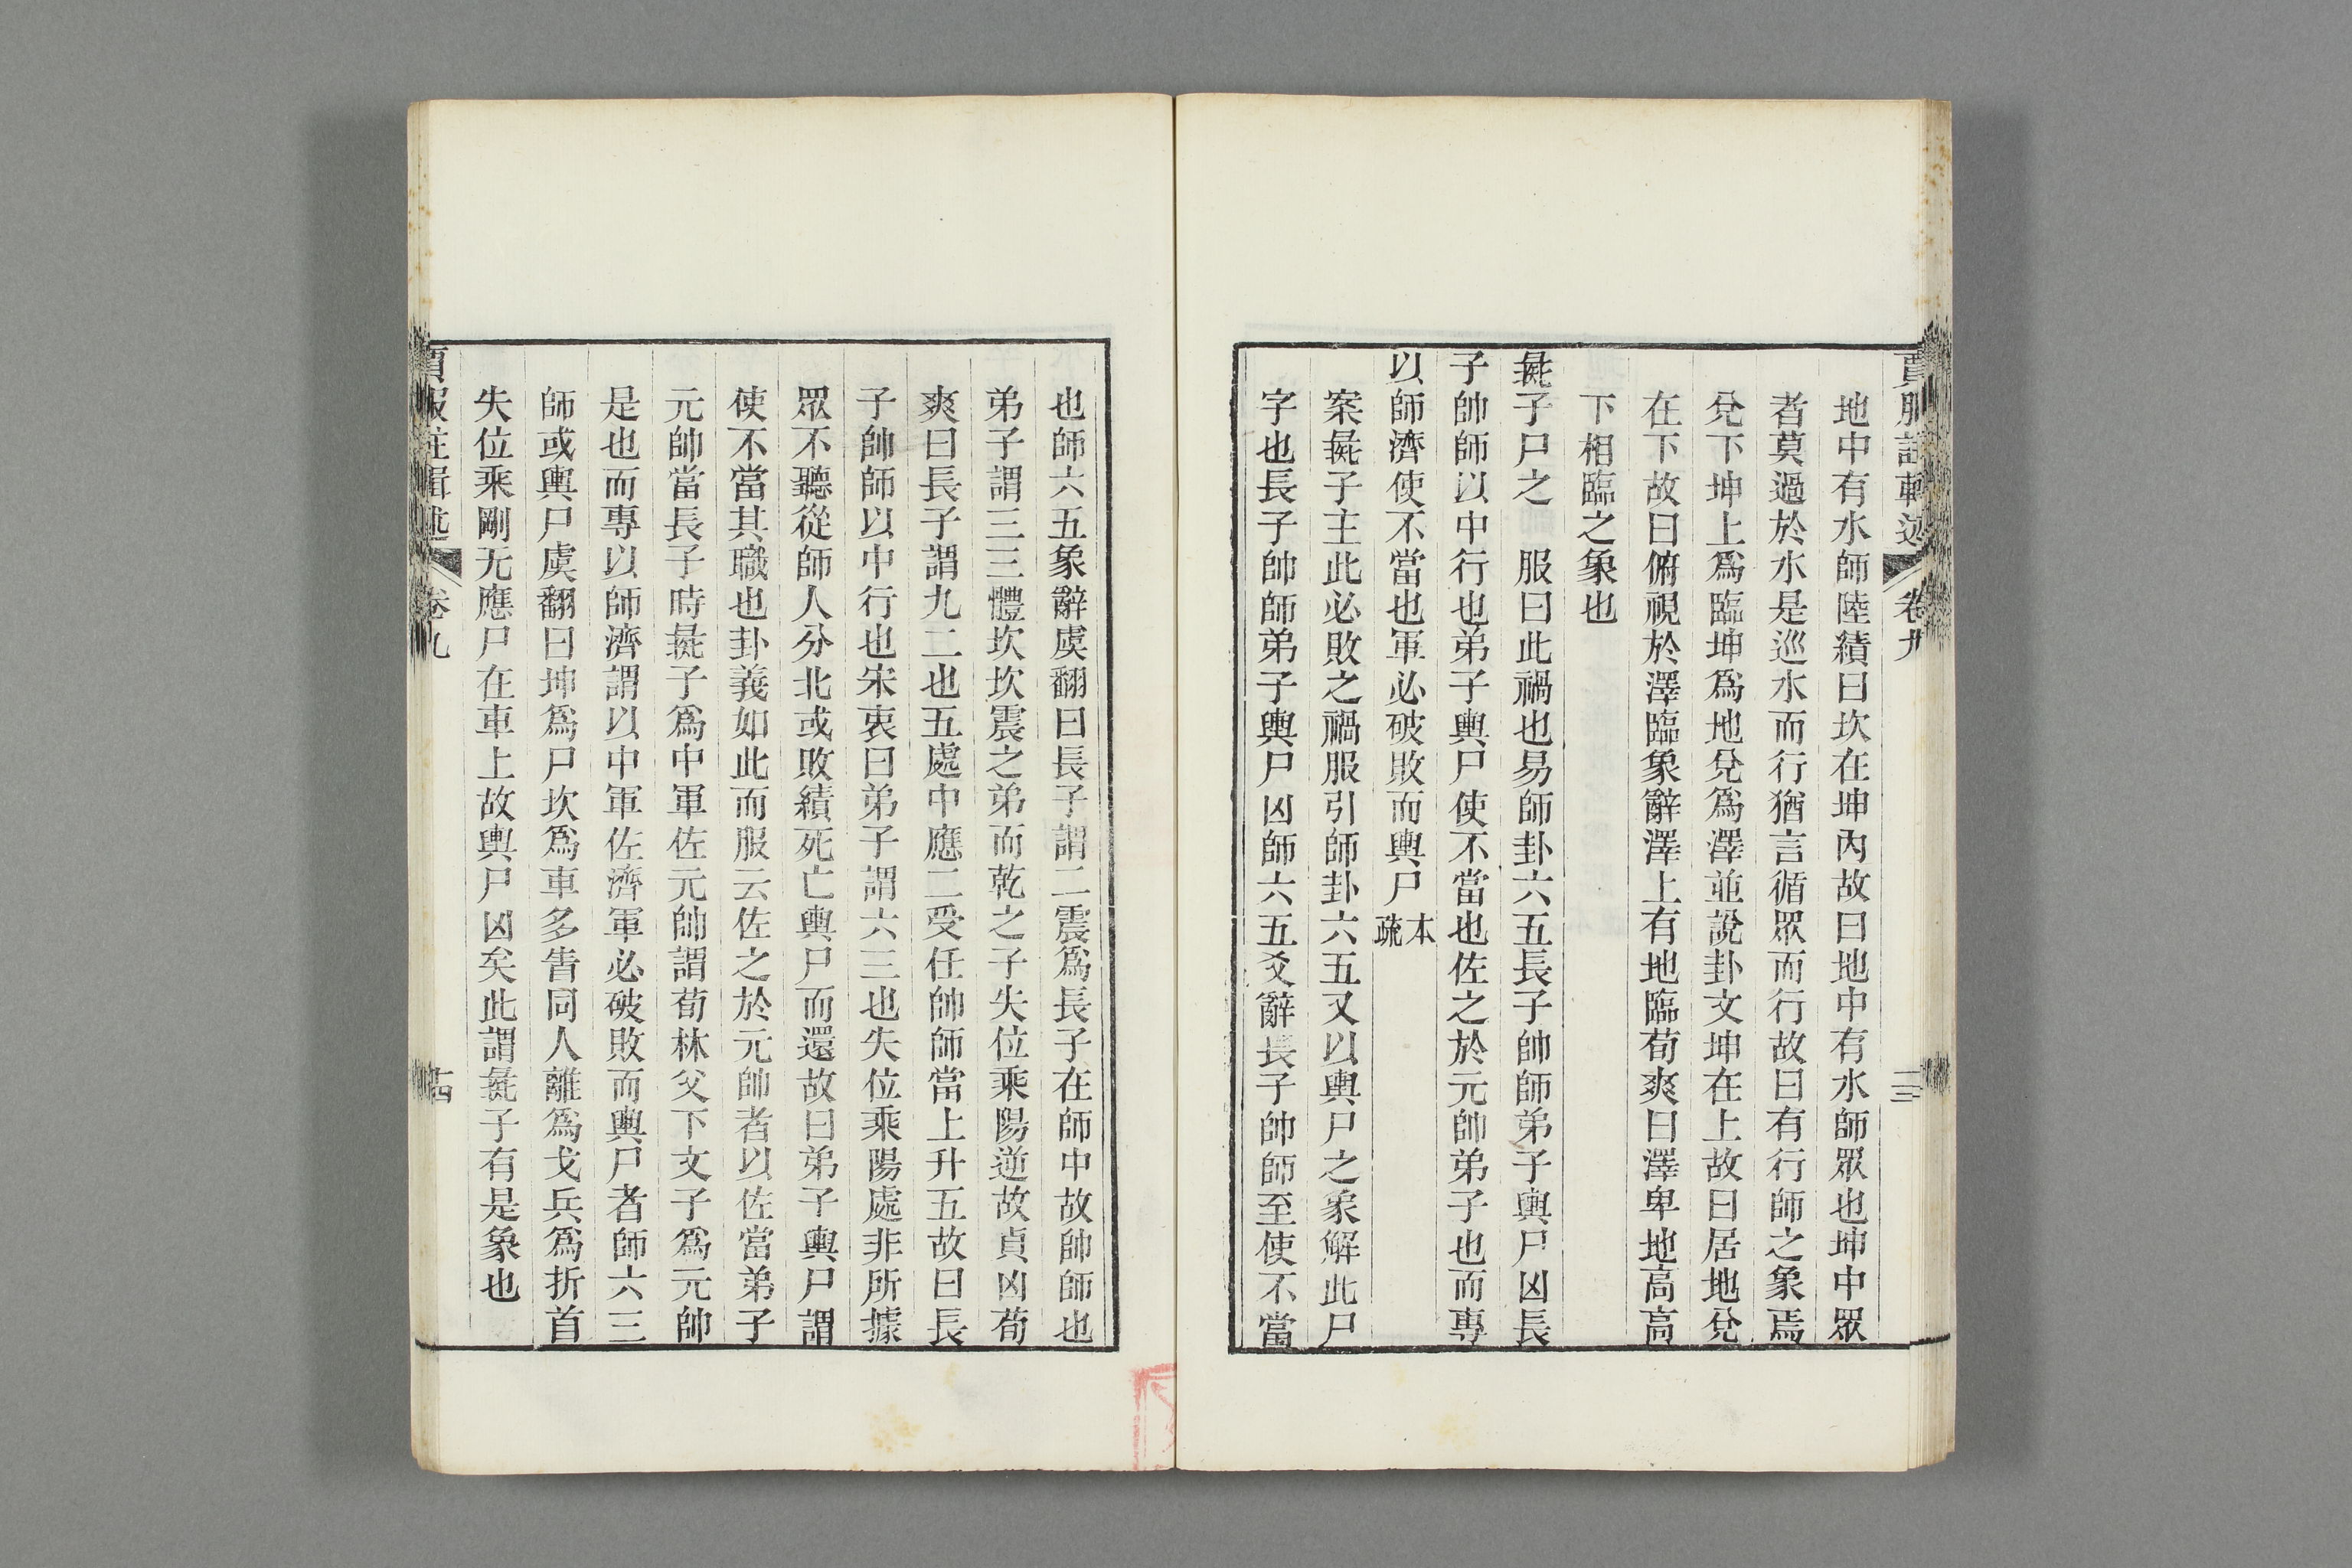 賈服註輯述 卷九 十三
地中有水師陸績曰坎在坤內故曰地中有水師眾也坤中眾
者莫過於水是巡水而行猶言循眾而行故曰有行師之象焉
兌下坤上爲臨坤爲地兌爲澤並說卦文坤在上故曰居地兌
在下故曰俯視於澤臨象辭澤上有地臨荀爽曰澤卑地高高
下相臨之象也
彘子尸之 服曰此禍也易師卦六五長子帥師弟子輿尸凶長
子帥師以中行也弟子輿尸使不當也佐之於元帥弟子也而專
以師濟使不當也軍必破敗而輿尸 本疏
案彘子主此必敗之禍服引師卦六五又以輿尸之象解此尸
字也長子帥師弟子輿尸凶師六五爻辭長子帥師至使不當
也師六五象辭虞翻曰長子謂二震爲長子在師中故帥師也
弟子謂三三體坎坎震之弟而乾之子失位乘陽逆故貞凶荀
爽曰長子謂九二也五處中應二受任帥師當上升五故曰長
子帥師以中行也宋衷曰弟子謂六三也失位乘陽處非所據
眾不聽從師人分北或敗績死亡輿尸而還故曰弟子輿尸謂
使不當其職也卦義如此而服云佐之於元帥者以佐當弟子
元帥當長子時彘子爲中軍佐元帥謂荀林父下文子爲元帥
是也而專以師濟謂以中軍佐濟軍必破敗而輿尸者師六三
師或輿尸虞翻曰坤爲尸坎爲車多眚同人離爲戈兵爲折首
失位乘剛无應尸在車上故輿尸凶矣此謂彘子有是象也
賈服註輯述 卷九 十四